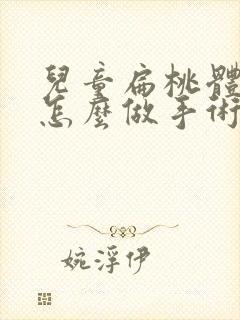 兒童扁桃體
怎麼做手術
婉浮伊